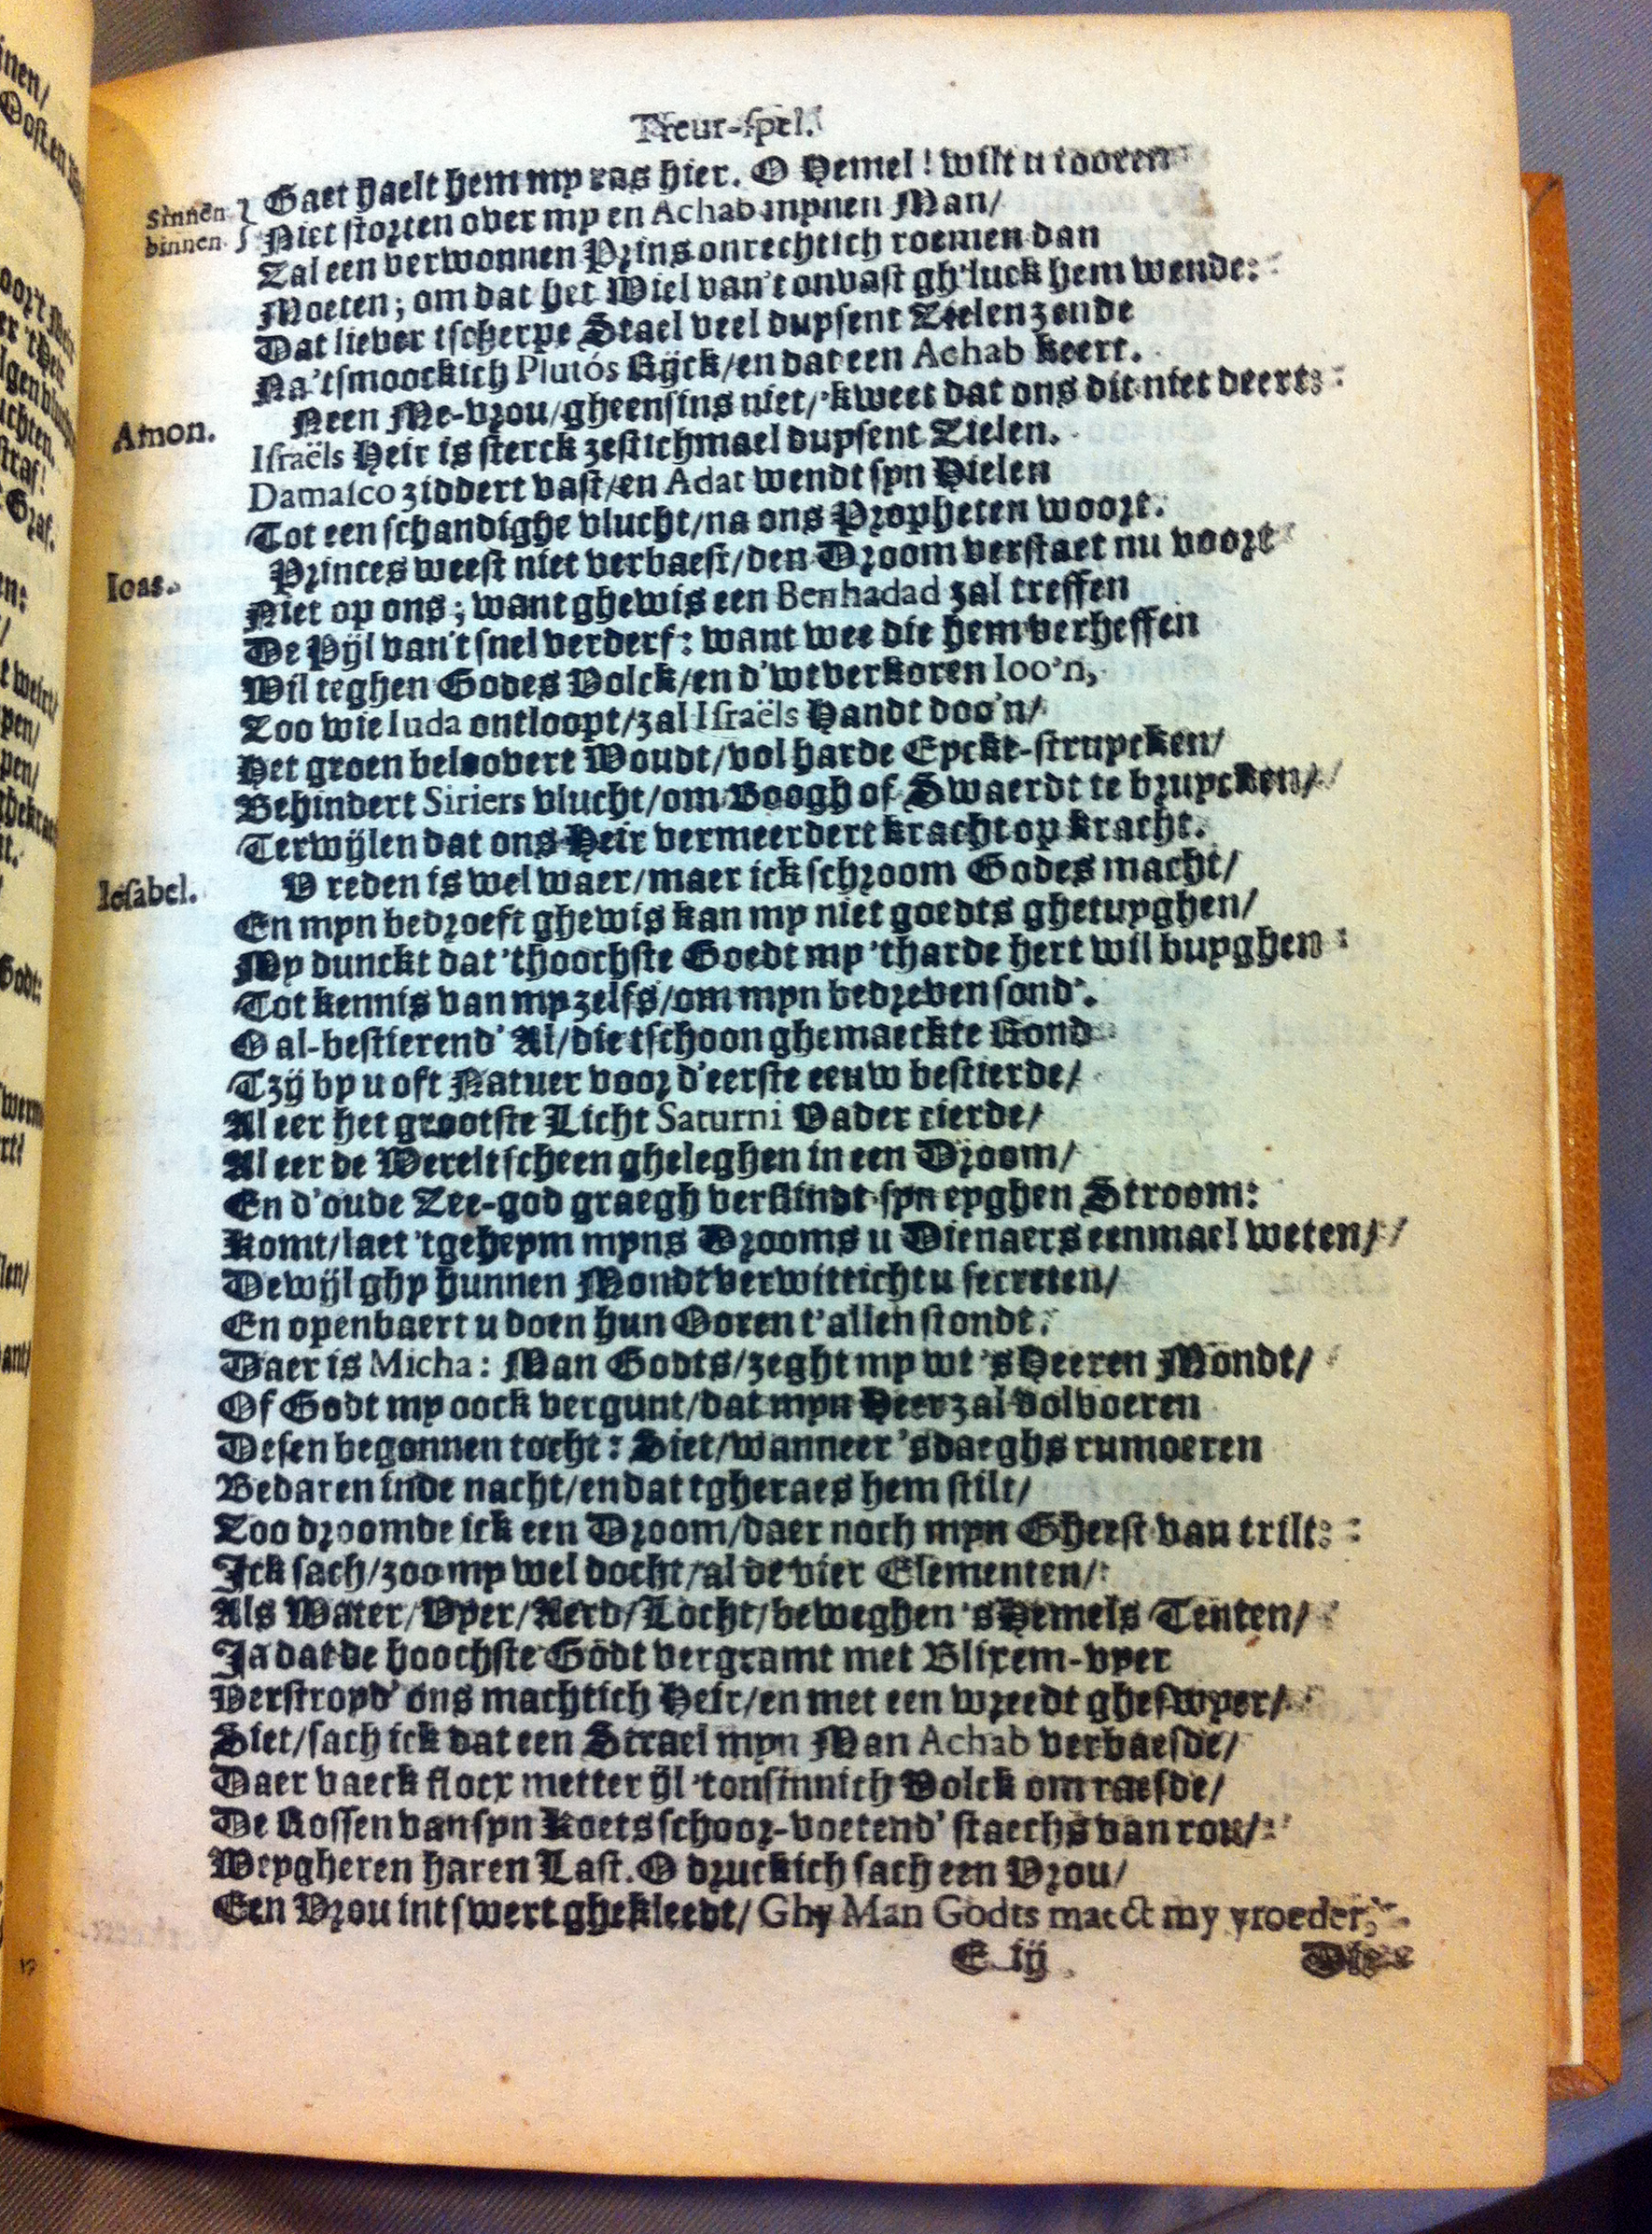 Treur-spel.
Sinnen binnen. Gaet haelt hem my ras hier. O Hemel! wilt u tooren
Niet storten over my en Achab mynen Man/
Zal een verwonnen Prins onrechtich roemen dan
Moeten; om dat het Wiel van't onvast gh'luck hem wende:
Dat liever tscherpe Stael veel duysent Zielen zende
Na'tsmoockich Plutós Rijck/en dat een Achab keert.
Amon. Neen Me-vrou/gheensins niet/'kweet dat ons dit niet deert:
Israëls Heir is sterck zestichmael duysent Zielen.
Damasco ziddert vast/en Adat wendt syn Hielen
Tot een schandighe vlucht/na ons Propheten woort.
Ioas. Princes weest niet verbaest/den Droom verstaet nu voort
Niet op ons; want ghewis een Benhadad zal treffen
De Pijl van't snel verderf: want wee die hem verheffen
Wil teghen Godes Volck/en d'wtverkoren Ioo'n,
Zoo wie Iuda ontloopt/zal Israëls Handt doo'n/
Het groen beloovert Woudt/vol harde Eyckt-struycken/
Behindert Siriers vlucht/om Boogh of Swaerdt te bruycken/
Terwijlen dat ons Heir vermeerdert kracht op kracht.
Iesabel. V reden is wel waer/maer ick schroom Godes macht/
En myn bedroeft ghewis kan my niet goedts ghetuyghen/
My dunckt dat 'thoochste Goedt my 'tharde hert wil buyghen:
Tot kennis van my zelfs/om myn bedreven sond'.
O al-bestierend' Al/die tschoon ghemaeckte Rond
Tzij by u oft Natuer voor d'eerste eeuw bestierde/
Al eer het grootste Licht Saturni Vader cierde/
Al eer de Werelt scheen gheleghen in een Droom/
En d'oude Zee-god graegh verslindt syn eyghen Stroom:
Komt/laet 'tgeheym myns Drooms u Dienaers eenmael weten/
Dewijl ghy hunnen Mondt verwitticht u secreten/
En openbaert u doen hun Ooren t'allen stondt.
Daer is Micha: Man Godts/zeght my wt 's Heeren Mondt/
Of Godt my oock vergunt/dat myn Heer zal volvoeren
Desen begonnen tocht: Siet/wanneer 'sdaeghs rumoeren
Bedaren inde nacht/en dat tgheraes hem stilt/
Zoo droomde ick een Droom/daer noch myn Gheest van trilt:
Ick sach/zoo my wel docht/al de vier Elementen/
Als Water/Vyer/Aerd/Locht/beweghen 's Hemels Tenten/
Ja dat de hoochste Godt vergramt met Blixem-vyer
Verstroyd' ons machtich Heir/en met een wreedt gheswyer/
Siet/sach ick dat een Strael myn Man Achab verbaesde/
Daer vaeck flocx metter ijl 'tonsinnich Volck om raesde/
De Rossen van syn Koets schoor-voetend' staechs van rou/
Weygheren haren Last. O druckich sach een Vrou/
Een Vrou int swert ghekleedt/ Ghy Man Godts maeckt my vroeder,
E iij